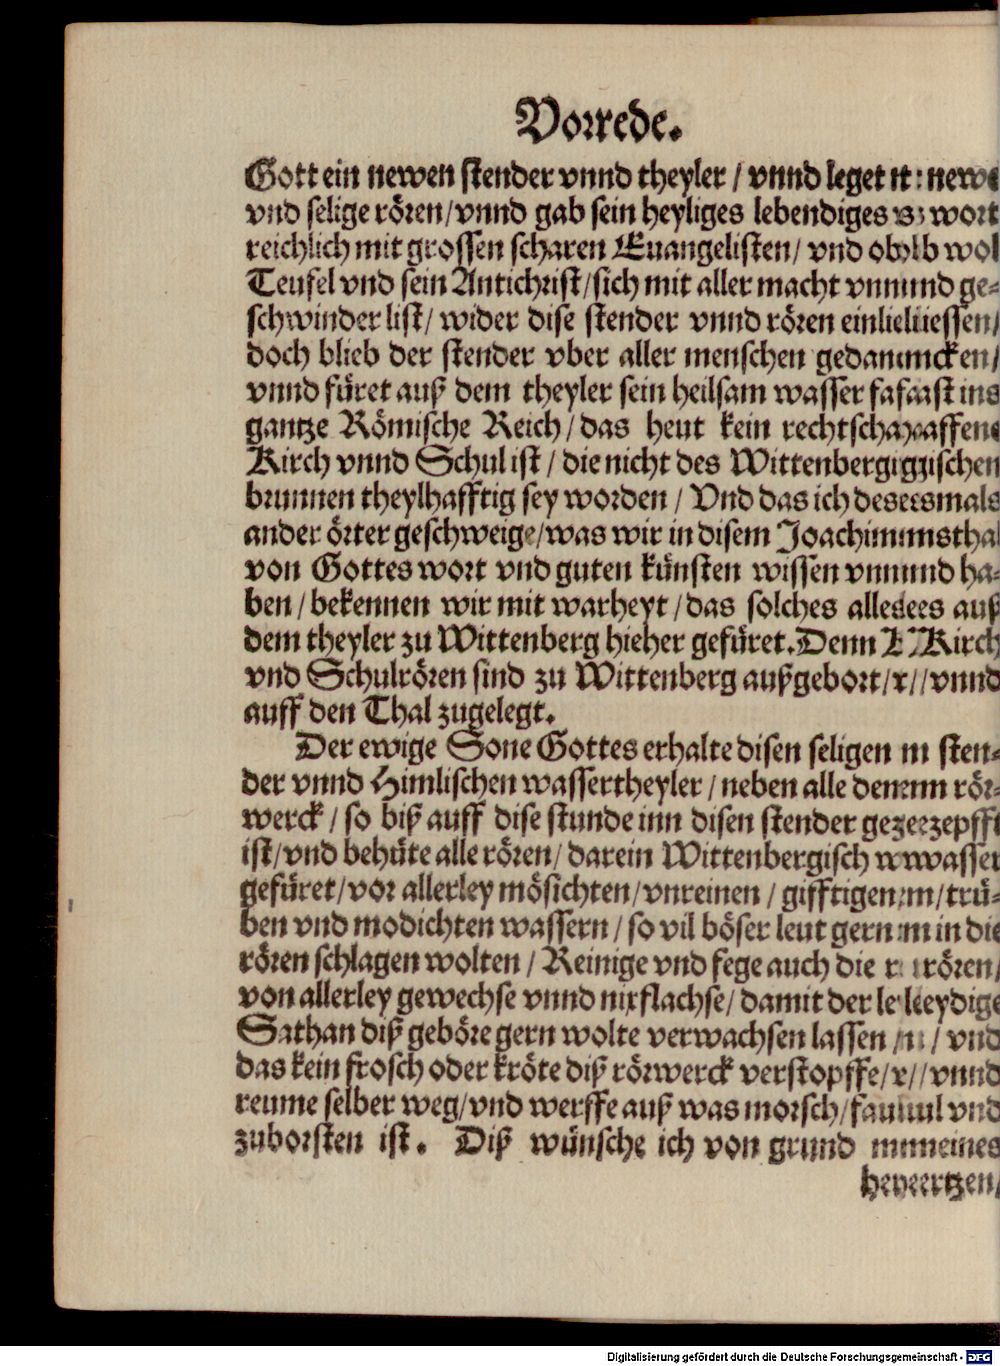 Vorrede.
Gott ein newen stender vnnd theyler / vnnd leget newe
vnd selige rören/vnnd gab sein heyliges lebendiges wort
reichlich mit grossen scharen Euangelisten/ vnd ob wol
Teufel vnd sein Antichrist/sich mit aller macht vnnd ge⸗
schwinder list/ wider dise stender vnnd rören einliessen/
doch blieb der stender vber aller menschen gedancken/
vnnd füret auß dem theyler sein heilsam wasser fast ins
gantze Römische Reich/das heut kein rechtschaffene
Kirch vnnd Schul ist / die nicht des Wittenbergischen
brunnen theylhafftig sey worden / Vnd das ich desmals
ander örter geschweige/was wir in disem Joachimsthal
von Gottes wort vnd guten künsten wissen vnnd ha⸗
ben/bekennen wir mit warheyt/das solches alles auß
dem theyler zu Wittenberg hieher gefüret. Denn Kirch
vnd Schulrören sind zu Wittenberg außgebort/ vnnd
auff den Thal zugelegt.
Der ewige Sone Gottes erhalte disen seligen sten⸗
der vnnd Himlischen wassertheyler / neben alle dem rör⸗
werck / so biß auff dise stunde inn disen stender gezepfft
ist/vnd behüte alle rören/ darein Wittenbergisch wasser
gefüret/vor allerley mösichten/vnreinen / gifftigen/trü⸗
ben vnd modichten wassern / so vil böser leut gern in die
rören schlagen wolten / Reinige vnd fege auch die rören/
von allerley gewechse vnnd nixflachse/ damit der leydige
Sathan diß geböre gern wolte verwachsen lassen / vnd
das kein frosch oder kröte diß rörwerck verstopffe/ vnnd
reume selber weg/vnd werffe auß was morsch/faul vnd
zuborsten ist. Diß wünsche ich von grund meines
hertzen/
Digitalisierung gefördert durch die Deutsche Forschungsgemeinschaft - DFG